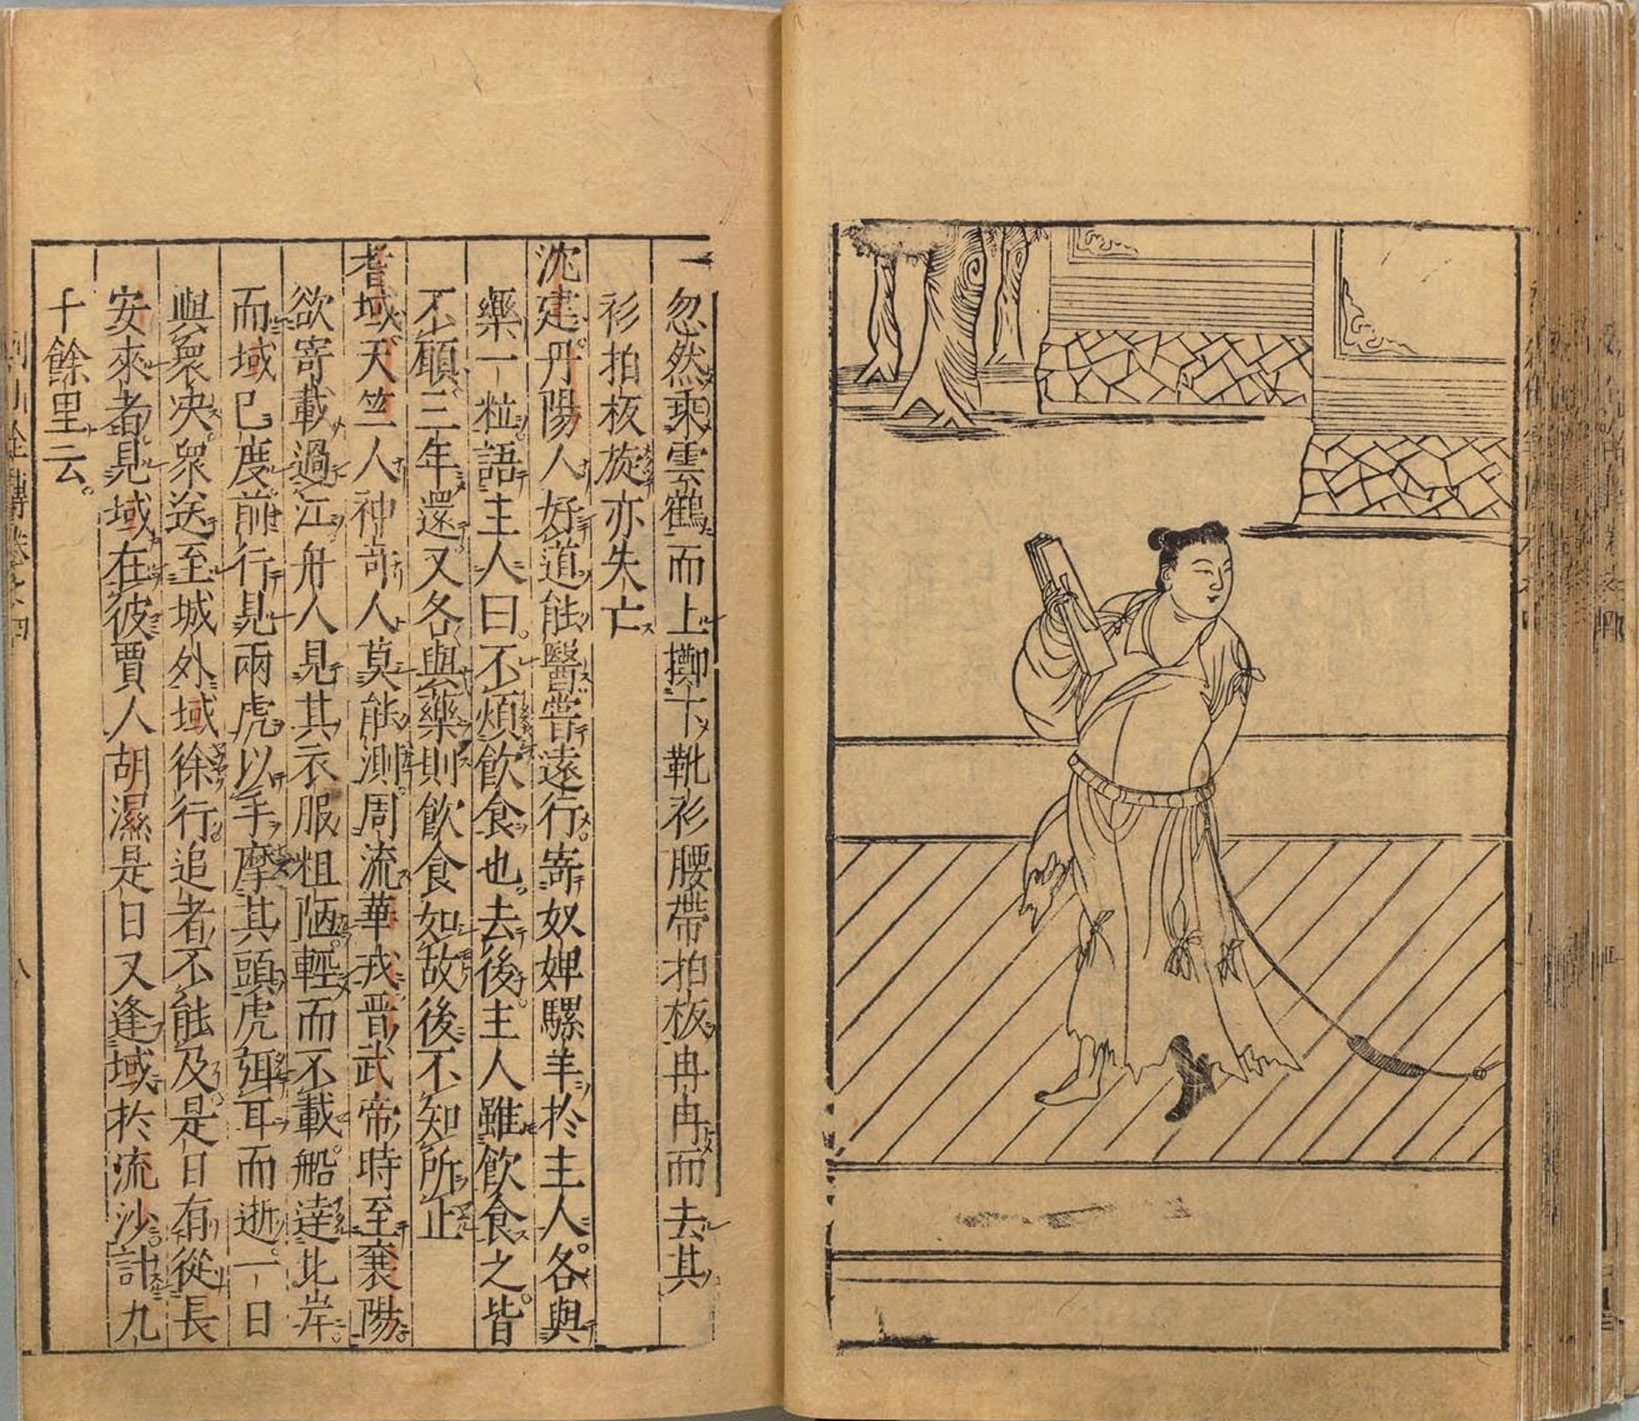 忽然乘雲鶴而上擲下靴衫腰帶拍板冉冉而去其
衫拍板旋亦失亡
沈建丹陽人好道能醫嘗遠行寄奴婢騾羊於主人各與
藥一粒語主人曰不煩飲食也去後主人雖飲食之皆
不顧三年還又各與藥則飲食如故後不知所止
耆域天竺人神奇人莫能測周流華戎晋武帝時至襄陽
欲寄載過江舟人見其衣服粗陋輕而不載船達北岸
而域已度前行見兩虎以手摩其頭虎弭耳而逝一日
與衆决衆送至城外域徐行追者不能及是日有從長
安來者見域在彼賈人胡濕是日又逢域於流沙計九
千餘里云